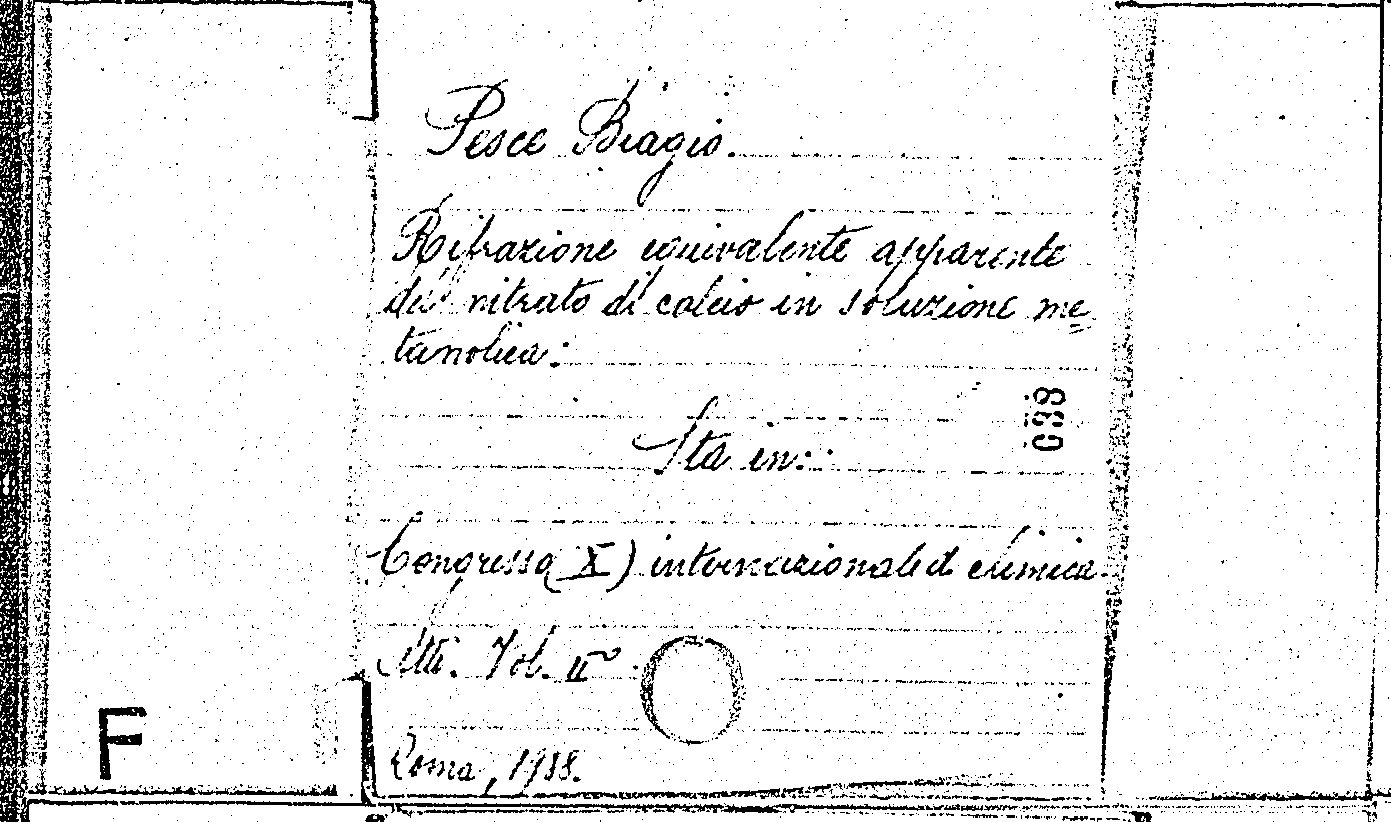 Pesce Biagio.
Rifrazione equivalente apparente
del nitrato di calcio in soluzione me=
tanolica:
G38
Sta in:
Congresso (X) internazionale di chimica.
Atti. Vol. II°
F
Roma, 1938.